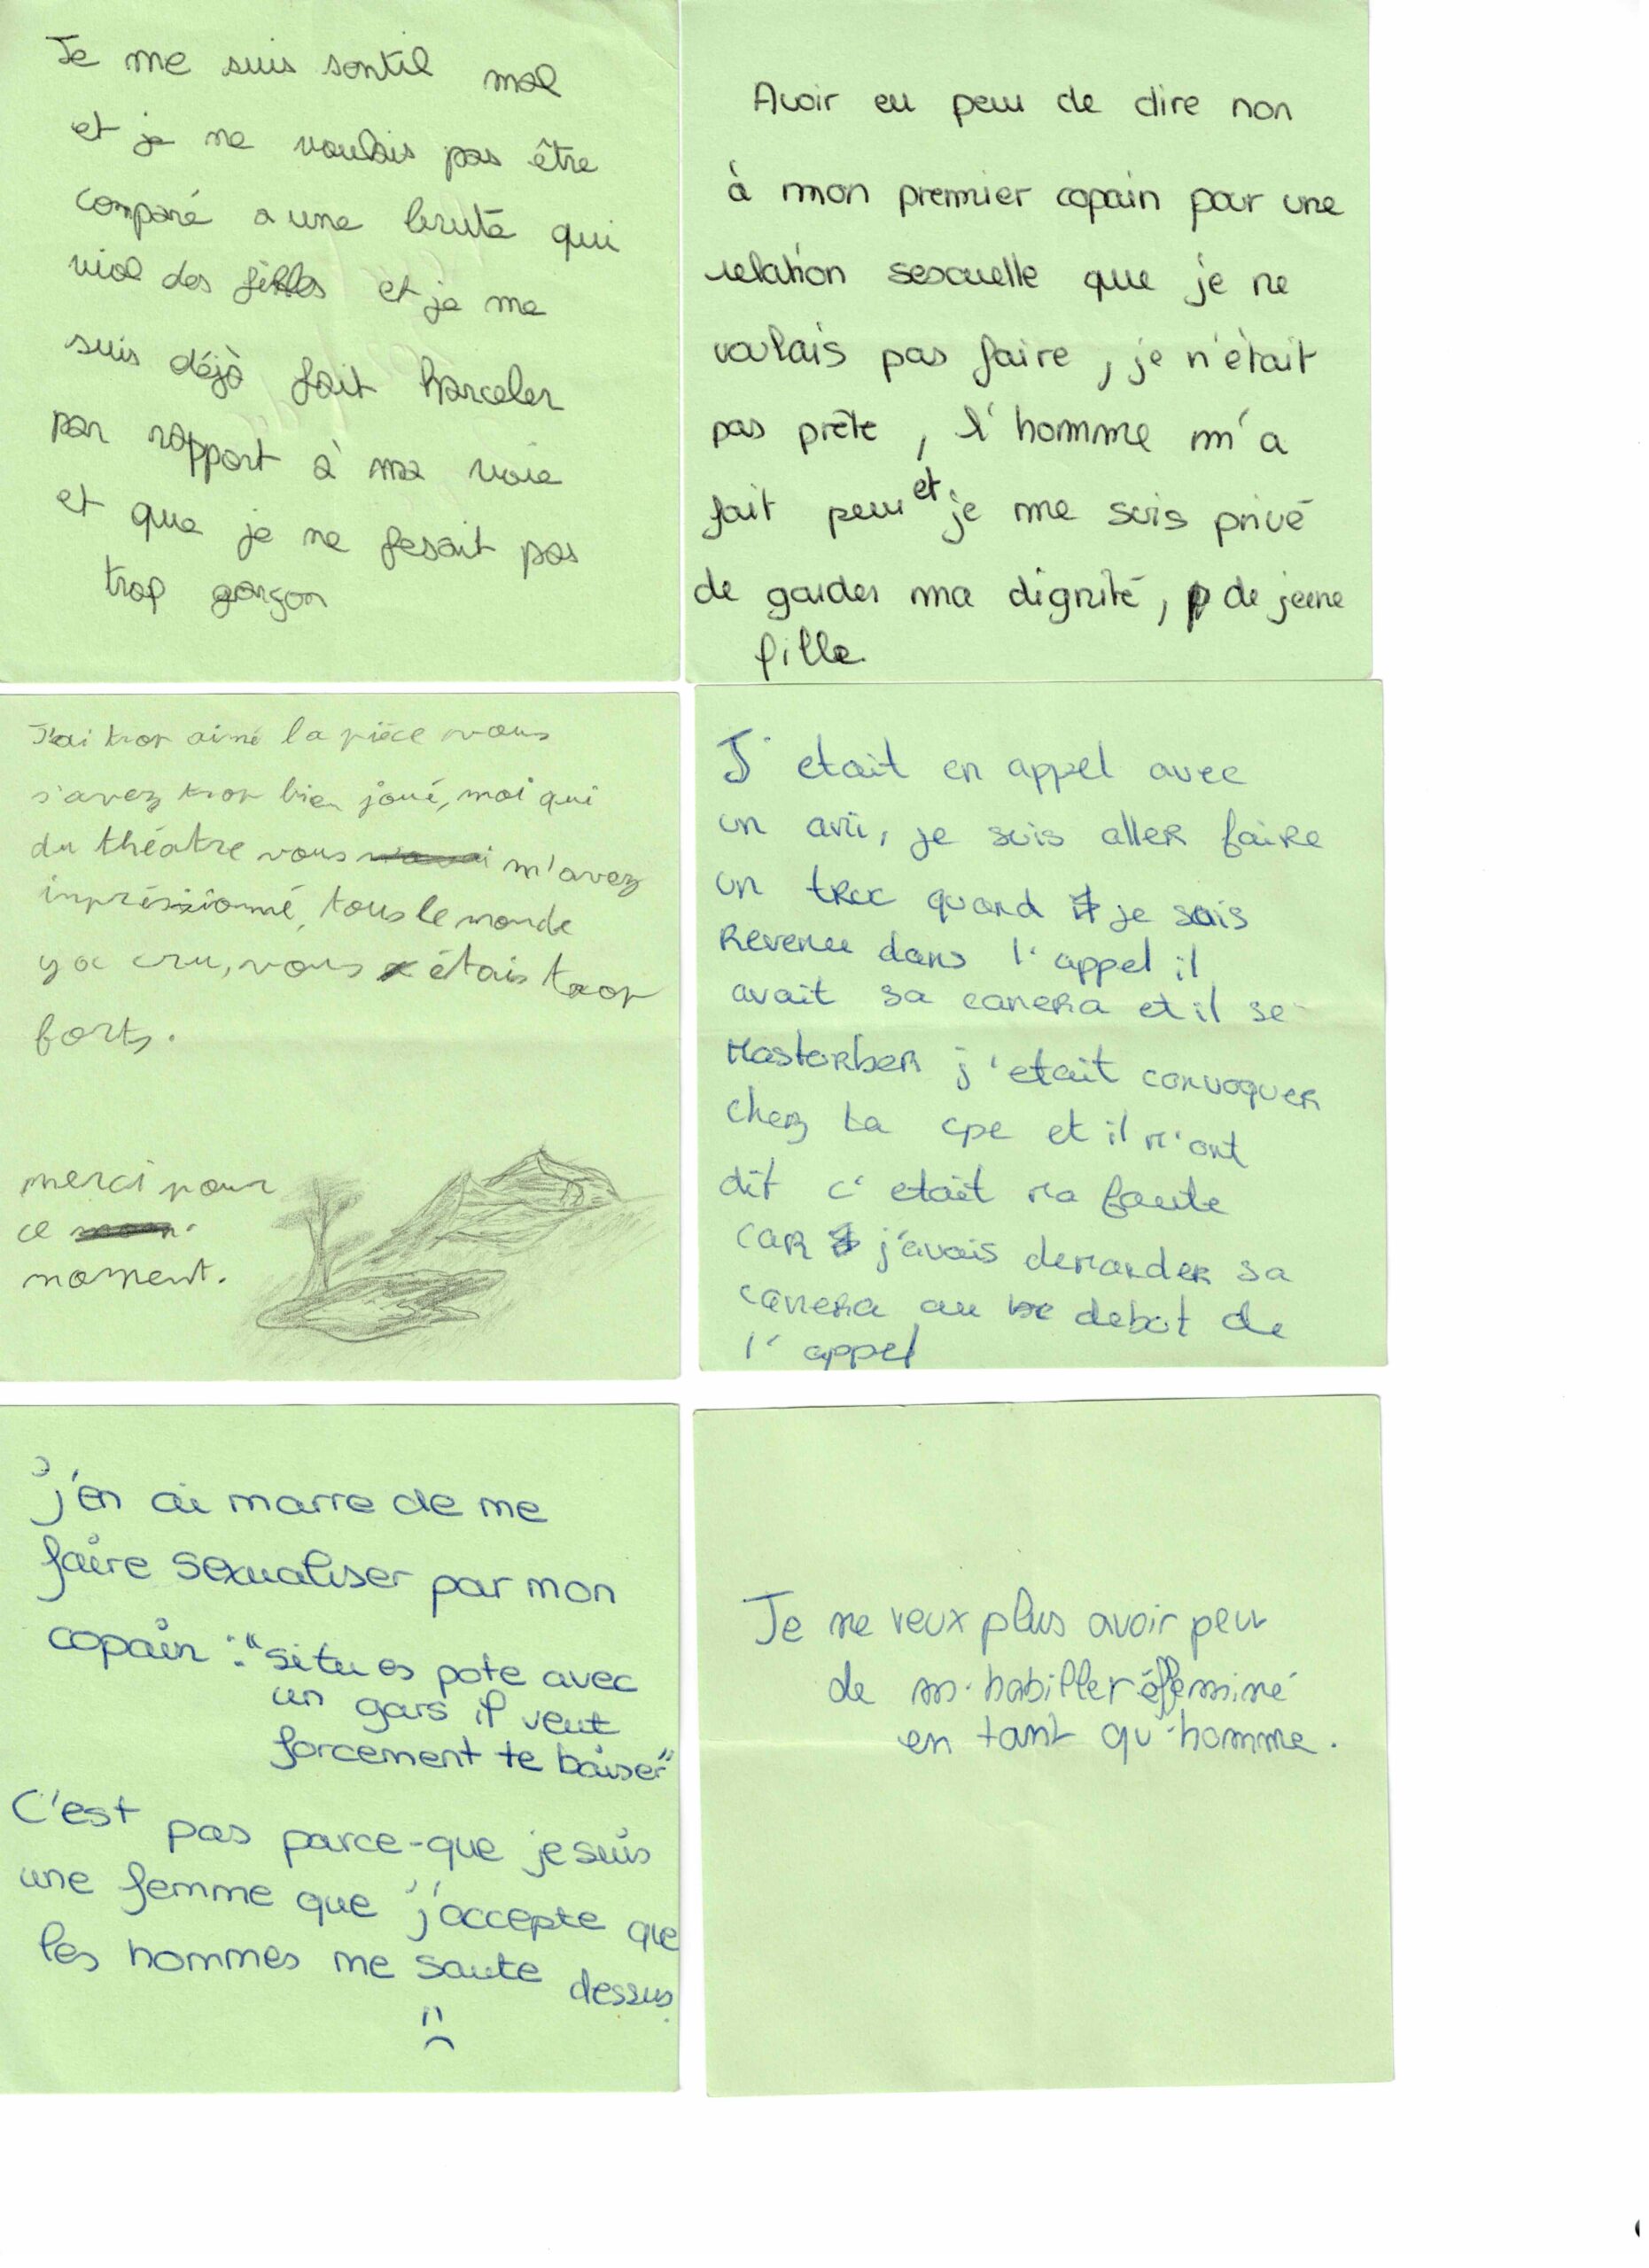 Je me suis sontil mal
et je ne voulais pas être
comparé a une brute qui
viol des filles et je me
suis déjà fait harceler
par rapport à ma voie
et que je ne fesait pas
trop garçon
Avoir eu peur de dire non
à mon premier copain pour une
relation sexuelle que je ne
voulais pas faire, je n'était
pas prête, l'homme m'a
fait peur et je me suis privé
de garder ma dignité, de jeune
fille.
J'ai trop aimé la pièce vous
s'avez trop bien joué, moi qui
du théatre vous m'avez
impréssionné, tous le monde
y a cru, vous étais trop
forts.
merci pour
ce
moment.
J'etait en appel avec
un ami, je suis aller faire
un truc quand je suis
Revenue dans l'appel il
avait sa camera et il se
Masturber j'etait convoquer
chez la cpe et il m'ont
dit c'etait ma faute
car j'avais demander sa
camera au debut de
l'appel
j'en ai marre de me
faire sexualiser par mon
copain : "si tu es pote avec
un gars il veut
forcement te baiser"
C'est pas parce-que je suis
une femme que j'accepte que
les hommes me saute dessus.
Je ne veux plus avoir peur
de m'habiller éffeminé
en tant qu'homme.